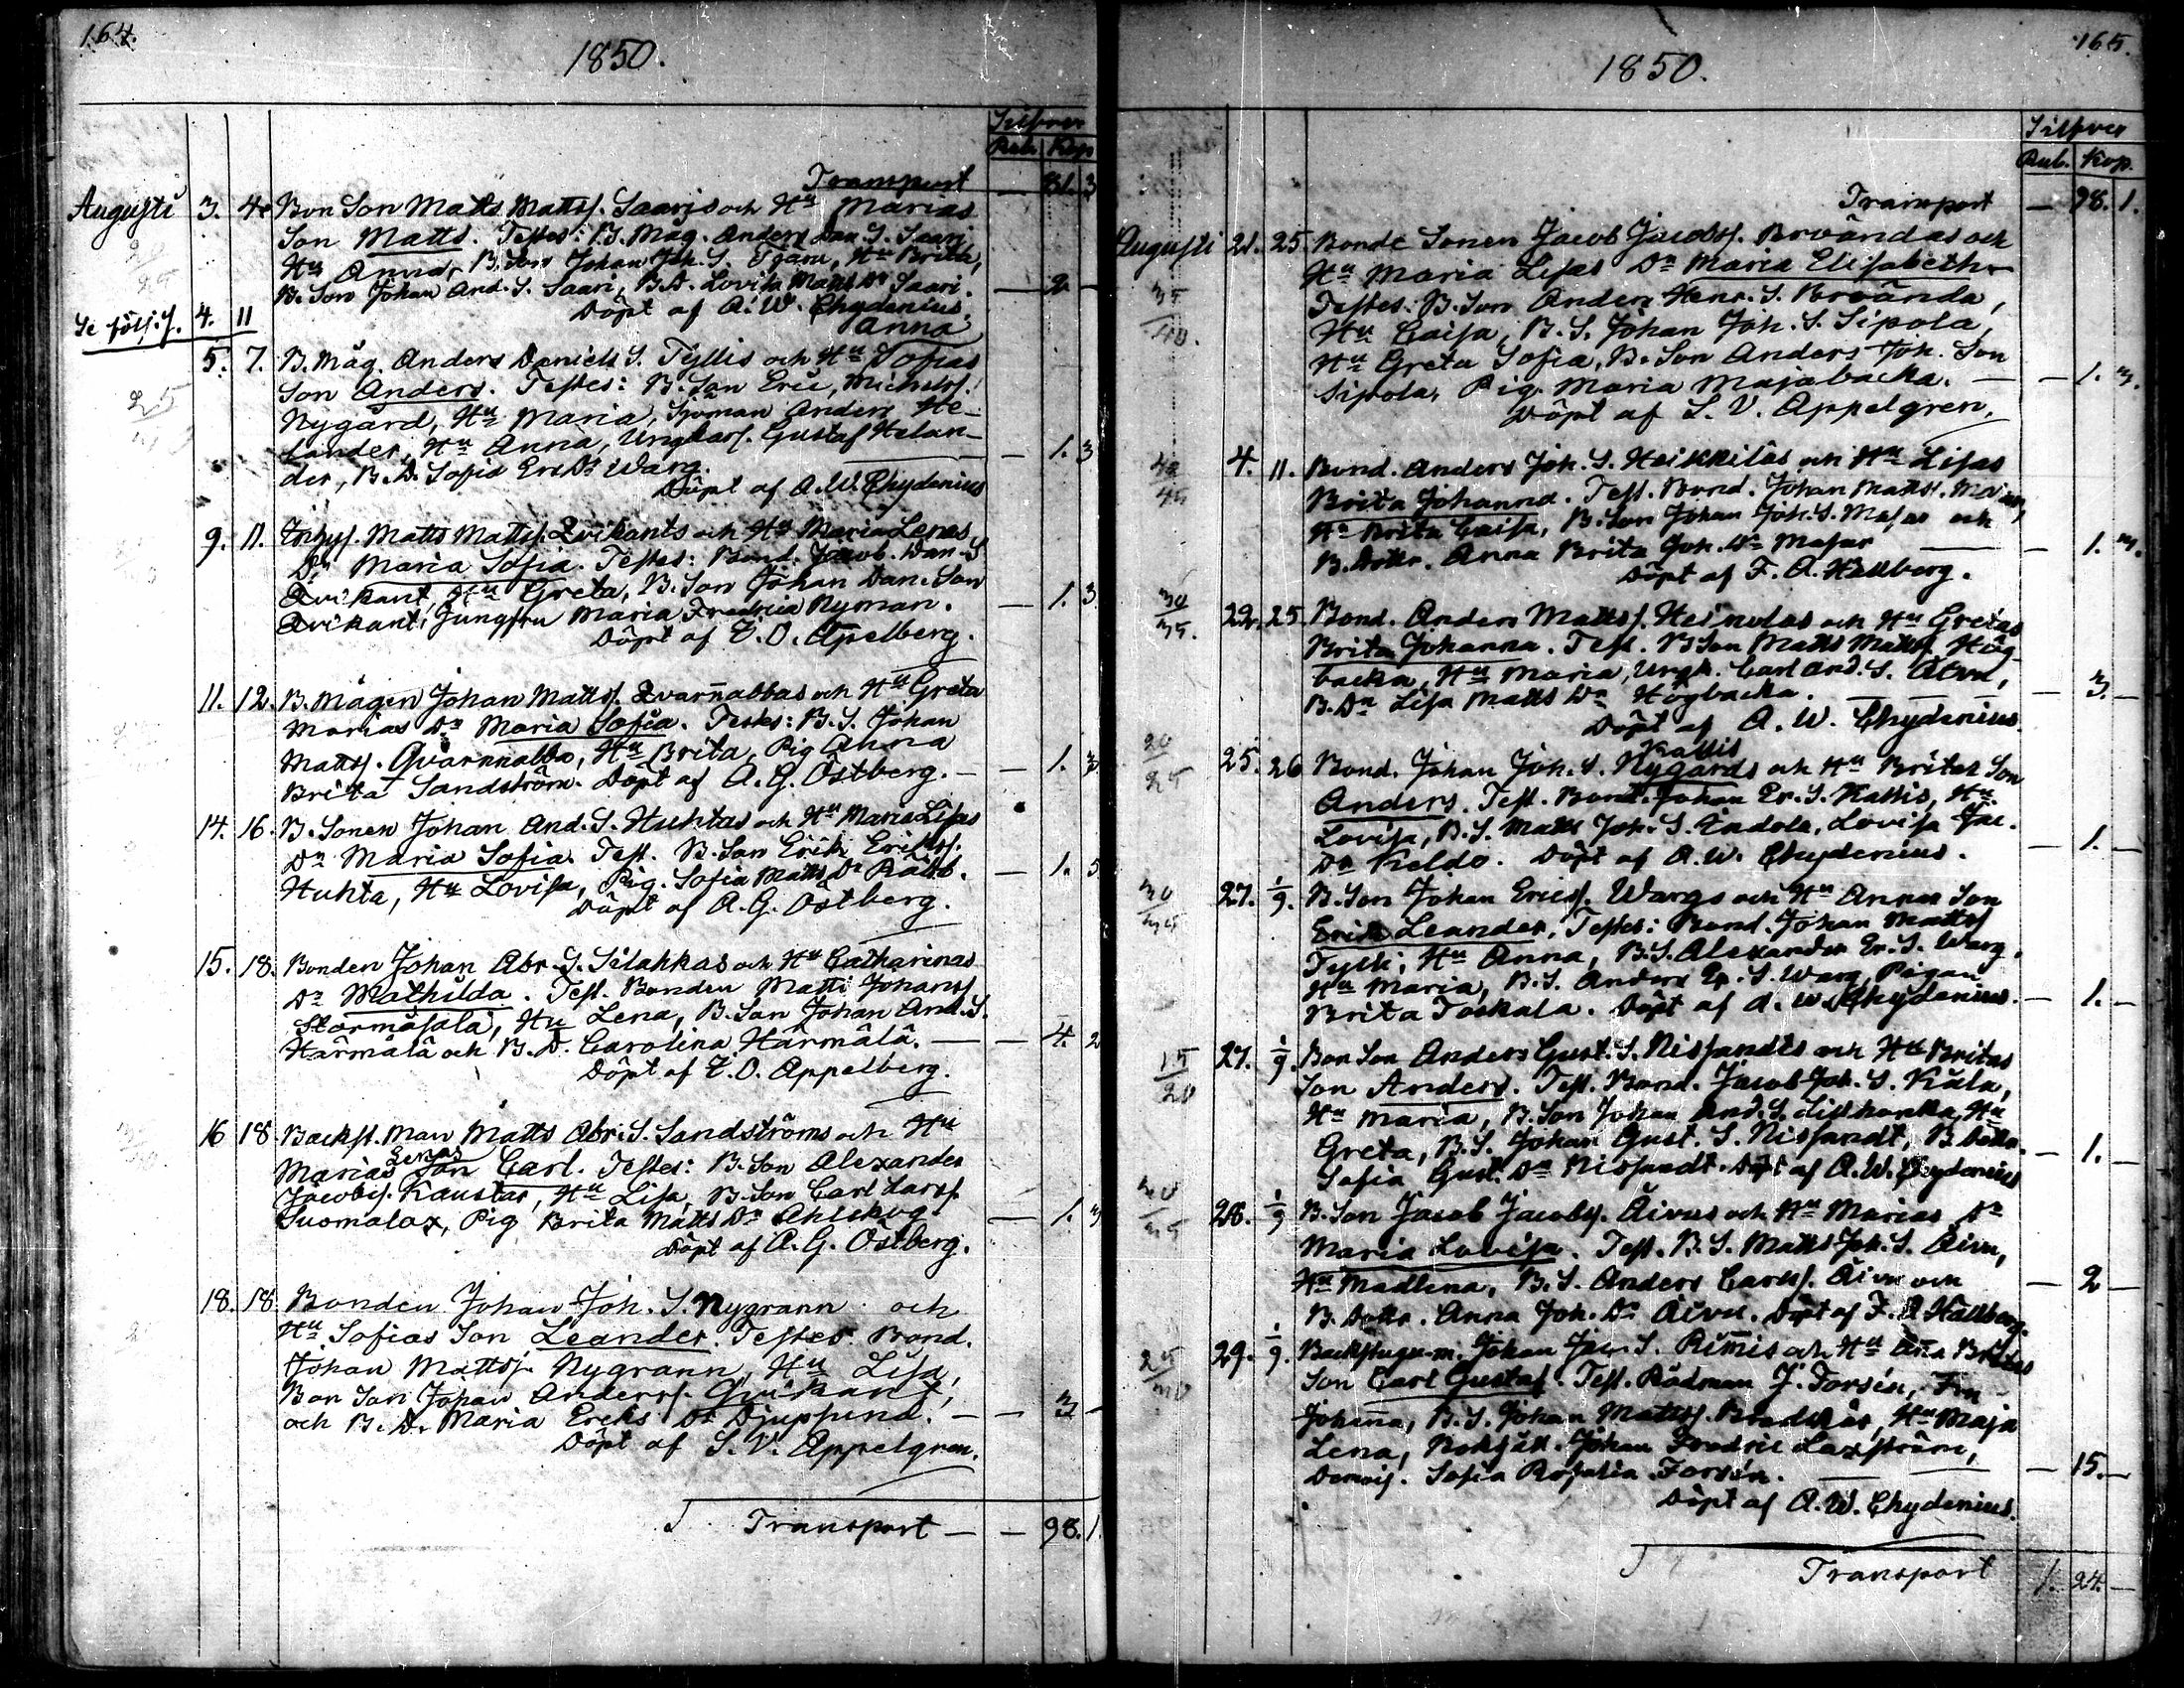 164.
1850.
Silfver
Rub. Kop
Transport — 81. 3
Augusti 3. 4. Bon Son Matts Mattss. Saaris och Hu Marias
Son Matts. Testes: B. Måg. Anders Dan. S. Saari,
Hu Anna, B. Son Johan Joh. S. Hu Brita,
B. Son Johan And. S. Saari, B. D. Lovisa Matts Dr Saari. — 2 —
Döpt af A. W. Chydenius.
Se följ. s. 4. 11
Anna
5. 7. B. Måg. Anders Daniels S. Tyllis och Hu Sofias
Son Anders. Testes: B. Son Eric, Michelss.
Nygård, Hu Maria, Sjöman Anders He-
lander, Hu Anna, Ungkarl. Gustaf Helan-
der, B. D. Sofia Eric Dr Warg. — 1. 3
Döpt af A. W. Chydenius
9. 11. Matts Mattss. Qvikants och Hu Maria Lenas
Dr Maria Sofia. Testes: Bond. Jacob. Dan. S
Qvikant, Hu Greta, B. Son Johan Dan. Son
Qvikant, Jungfru Maria Fredrica Nyman. — 1. 3
Döpt af Z. O. Appelberg.
11. 12. B. Mågen Johan Mattss. Qvarnabbas och Hu Greta
Marias Dr Maria Sofia. Testes: B. S. Johan
Mattss. Qvarnnabba, Hu Brita, Pig Anna
Brita Sandström. Döpt af A. G. Östberg. — — 1. 3
14. 16. B. Sonen Johan And. S. Huhtas och Hu Maria Lisas
Dr Maria Sofia. Test. B. Son Erik Erikss.
Huhta, Hu Lovisa, Pig. Sofia Matts Dr Rått. — 1. 5
Döpt af A. G. Östberg.
15. 18. Bonden Johan Abr. S. Silahkas och Hu Catharinas
Dr Mathilda. Test. Bonden Matts Johanss.
Stormåsala, Hu Lena, B. Son Johan And. S.
Härmälä och B. D. Carolina Härmälä. — — 4. 2
Döpt af Z. O. Appelberg.
16 18 Backst. Man Matts Abr. S. Sandströms och Hu
Lenas
Marias Son Carl. Testes: B. Son Alexander
Jacobss. Kaustar, Hu Lisa, B. Son Carl Larss.
Suomalax, Pig Brita Matts Dr Ahlskog. — 1. 3
Döpt af A. G. Östberg.
18. 18 Bonden Johan Joh. S. Nygrann och
Hu Sofias Son Leander. Testes Bond.
Johan Mattss. Nygrann, Hu Lisa,
Bon Son Johan Anderss. Qvikant,
och B. D. Maria Ericks Dr Djupsjund. — — 3 —
Döpt af S. V. Appelgren.
Transport — — 98. 1
165.
1850.
Silfver
Rub. Kop.
Transport — 98. 1.
Augusti 21. 25 Bonde Sonen Jacob Jacobss. Brvändas och
Hu Maria Lisas Dr Maria Elisabeth
Testes: B. Son Anders Henr. S. Brvända,
Hu Caisa, B. S. Johan Joh. S. Sipola,
Hu Greta Sofia, B. Son Anders Joh. Son
Sipola, Pig. Maria Majabacka. — — 1. 3.
Döpt af S. V. Appelgren.
4. 11. Bond. Anders Joh. S. Heikkiläs och Hu Lisas
Brita Johanna. Test. Bond. Johan Mattss.
Hu Brita Caisa, B. Son Johan Joh. S. Masar och
B. Dottr. Anna Brita Joh. Dr Masar — — 1. 3.
Döpt af F. A. Hällberg.
22. 25 Bond. Anders Mattss. Heinolas och Hu Gretas
Brita Johanna. Test. B Son Matts Mattss. Hög-
backa, Hu Maria, Ungk. Carl And. S. Äivu,
B. Dr Lisa Matts Dr Högbacka. — — 3. —
Döpt af A. W. Chydenius.
Kallis
25. 26 Bond. Johan Joh. S. Nygårds och Hu Britas Son
Anders. Test. Bond. Johan Er. S. Kallis, Hu
Lovisa, B. S. Matts Joh. S. Indola, Lovisa Jac.
Dr Keldo. Döpt af A. W. Chydenius. — 1. —
27. 1/9. B. Son Johan Ericss. Wargs och Hu Annas Son
Erik Leander, Testes: Bond. Johan Mattss
Tylli, Hu Anna, B. S. Alexander Er. S. Warg,
Hu Maria, B. S. Anders Er. S. Warg, Pigan
Brita Taskala. Döpt af A. W. Chydenius. — 1. —
27. 1/9. Bon Son Anders Gust. S. Nissandts och Hu Britas
Son Anders. Test. Bond. Jacob Joh. S. Kåla,
Hu Maria, B. Son Johan And. S. Hu
Greta, B. S. Johan Gust. S. Nissandt, B. Dottr.
Sofia Gust. Dr Nissandt. Döpt af A. W. Chydenius — 1. —
28. 1/9 B. Son Jacob Jacobss. Äivus och Hu Marias Dr
Maria Lovisa. Test. B. S. Matts Joh. S. Äivu,
Hu Madlena, B. S. Anders Carlss. Äivu och
B. Dottr. Anna Joh. Dr Äivu. Döpt af F. A Hällberg. — 2 —
29. 1/9. Backstugu-m. Johan Jac. S. Rimis och Hu Anna Britas
Son Carl Gustaf. Test. Rådman J. Forsén, Fru
Johanna, B. S. Johan Mattss. Hu Maja
Lena, Bokhåll. Johan Fredric Laxström,
Demois. Sofia Rosalia Forsén. — — 15. —
Döpt af A. W. Chydenius.
Transport 1. 24. —